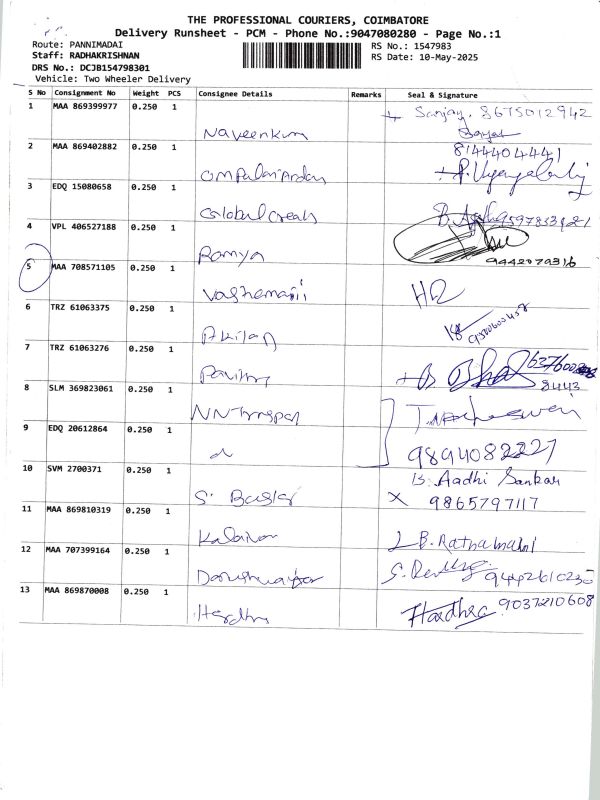 THE PROFESSIONAL COURIERS, COIMBATORE
Delivery Runsheet - PCM - Phone No.:9047080280 - Page No.:1
Route: PANNIMADAI
Staff: RADHAKRISHNAN
DRS No.: DCJB154798301
Vehicle: Two Wheeler Delivery
RS No.: 1547983
RS Date: 10-May-2025
S No Consignment No Weight PCS Consignee Details Remarks Seal & Signature
1 MAA 869399977 0.250 1 Sanjay. 8675012942
Naveenkum
2 MAA 869402882 0.250 1 8144404441
3 EDQ 15080658 0.250 1
Global Creats
4 VPL 406527188 0.250 1
Ramya 9442079316
5 MAA 708571105 0.250 1 HR
6 TRZ 61063375 0.250 1
Akilan
7 TRZ 61063276 0.250 1
8443
8 SLM 369823061 0.250 1
9 EDQ 20612864 0.250 1 9894082227
10 SVM 2700371 0.250 1 B. Aadhi Sankar
S. Baskar X 9865797117
11 MAA 869810319 0.250 1
B. Rathamani
12 MAA 707399164 0.250 1
9442610230
13 MAA 869870008 0.250 1 Haadhra 9037210608